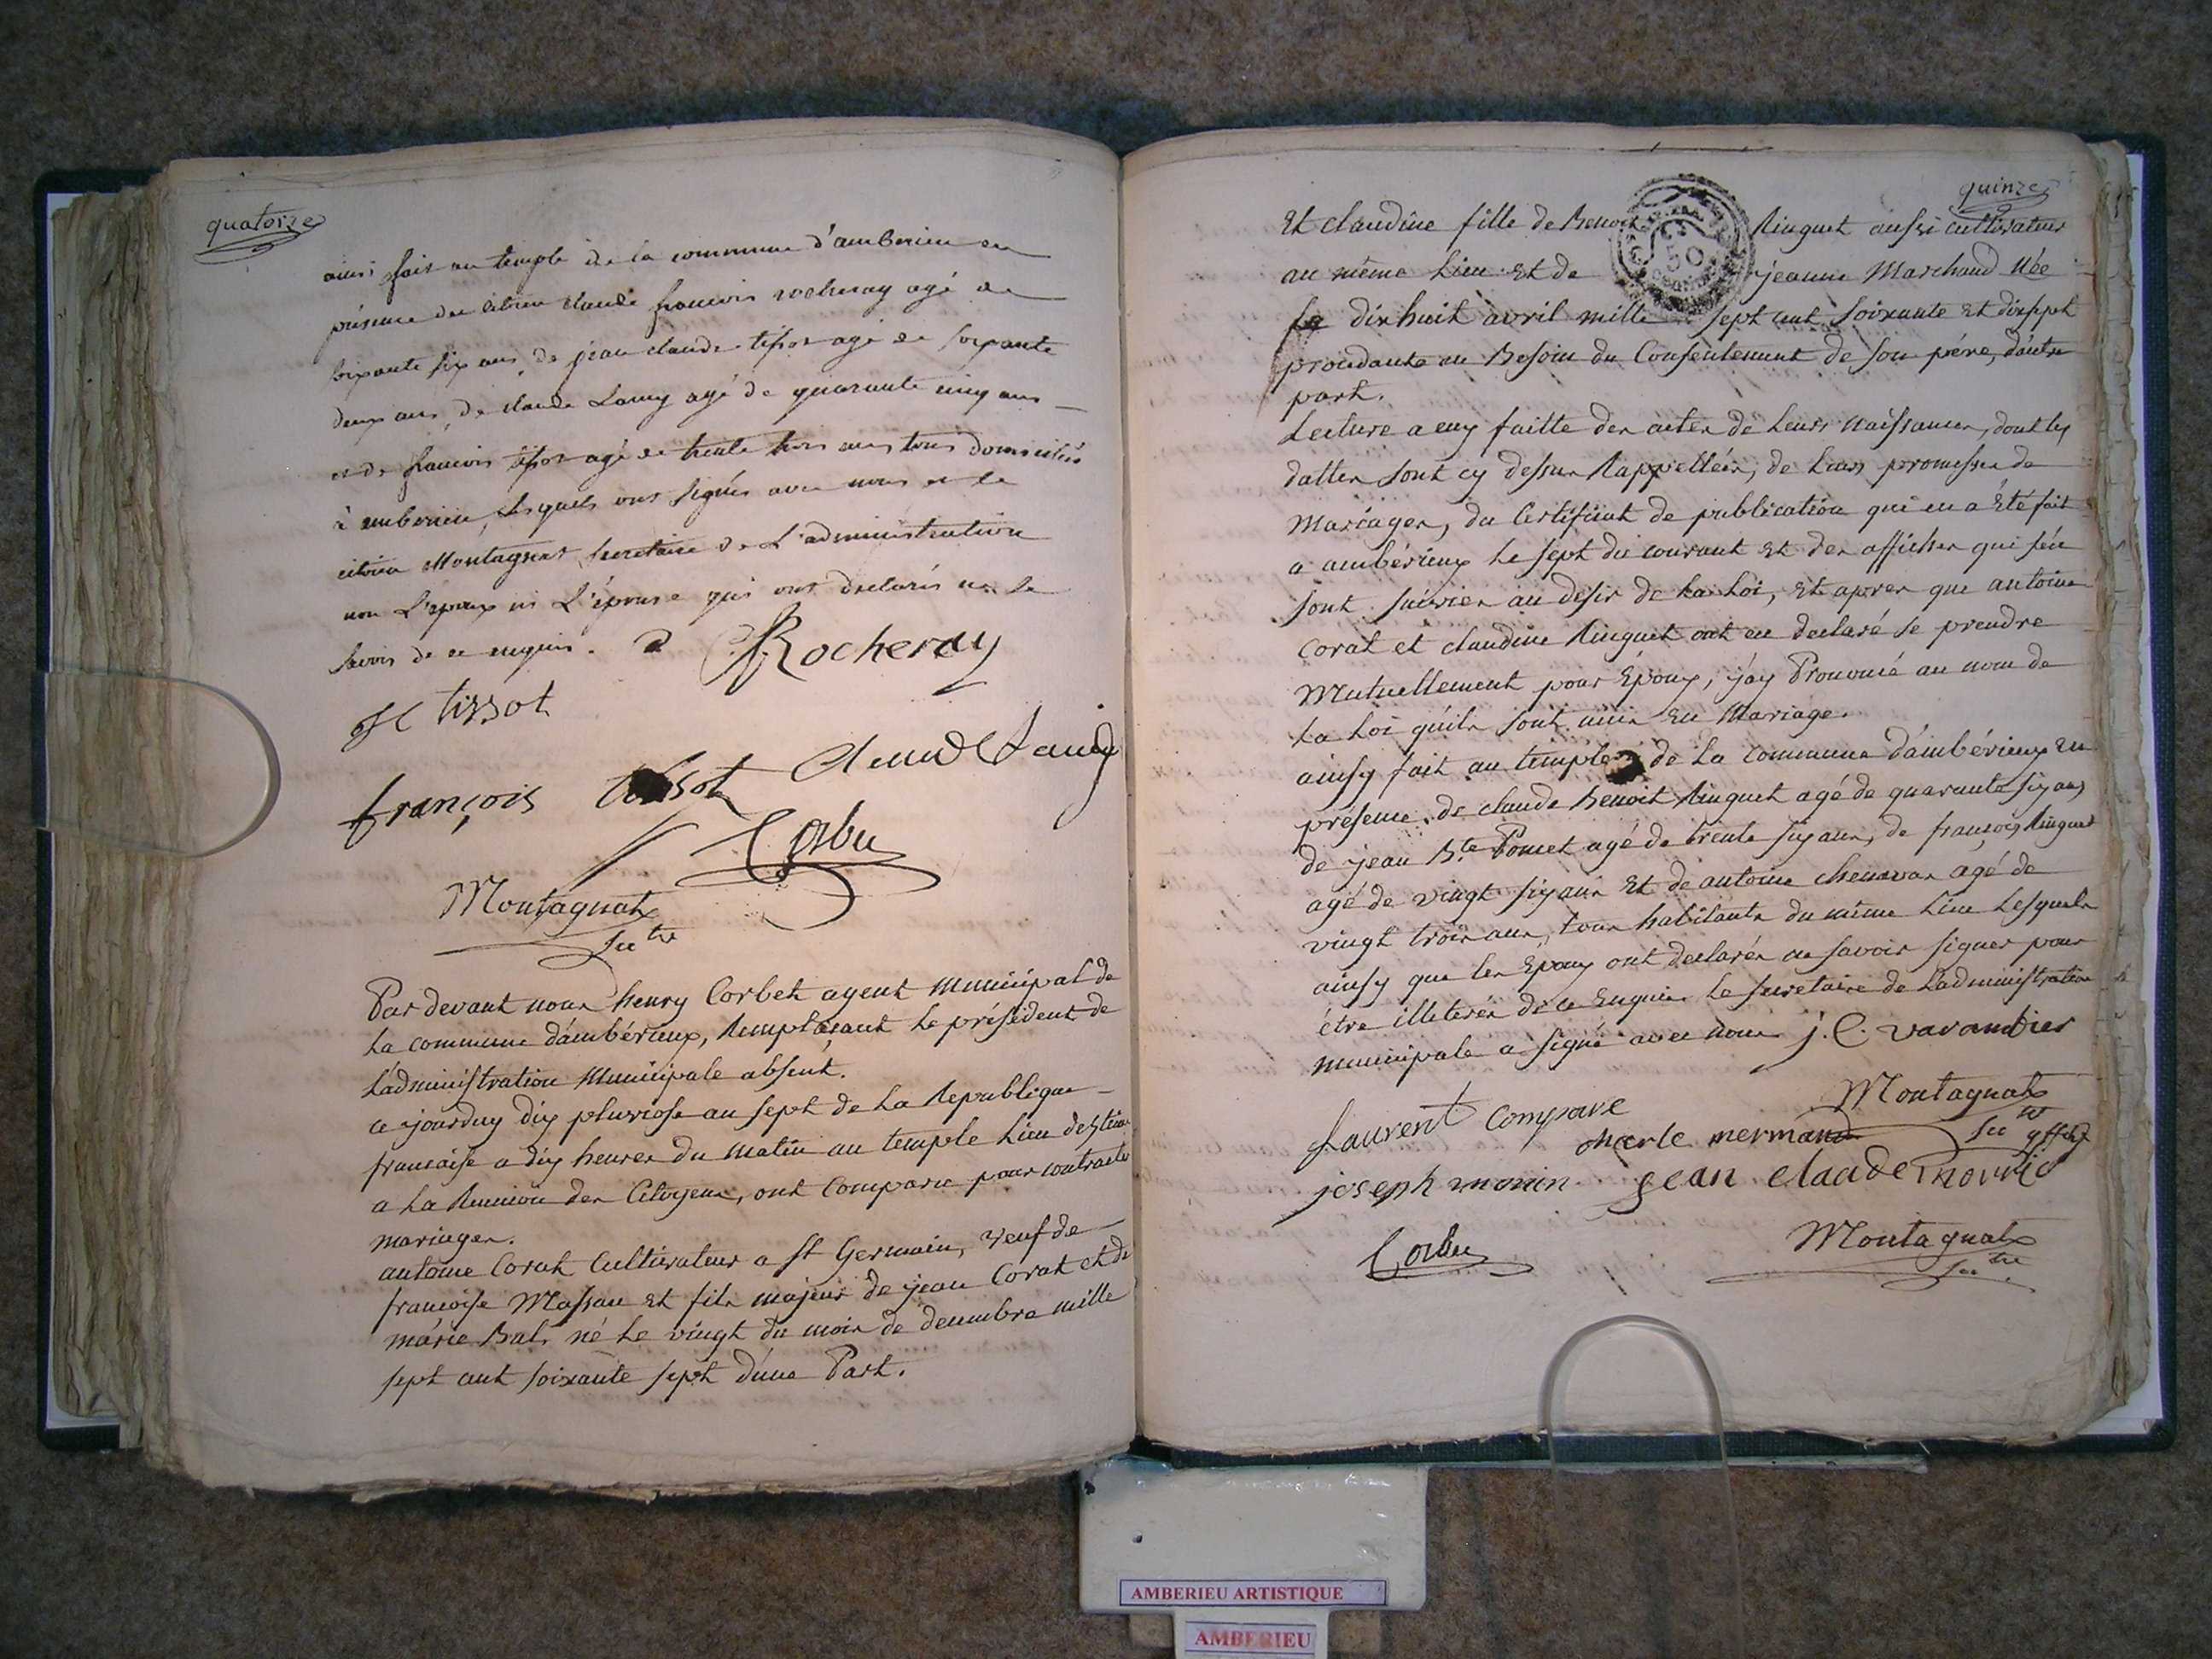 quatorze
ainsi fait au temple de la commune d'amberieu en
présence du citoien claude francois rocheray agé de
soixante six ans, de jean claude tissot agé de soixante
deux ans, de claude Lamy agé de quarante cinq ans
et de francois tissot agé de trente trois ans tous domiciliés
à amberieu, lesquels ont signés avec nous et le
citoien Montagnat secretaire de L'administration
non L'epoux ni L'épouse qui ont declarés ne le
savoir de ce enquis.
Rocheray
tissot
françois tissot
Corbet
Montagnat
Sec tre
Par devant nous henry Corbet agent Municipal de
La commune d'ambérieux, Remplaçant Le président de
L'administration Municipale absent.
ce jourduy dix pluviose an sept de La Republique
francaise a dix heures du matin au temple Lieu destiné
a La Reunion des Citoyens, ont comparu pour contracter
mariages.
antoine Corat Cultivateur a St Germain, veuf de
francoise Massau et fils majeur de jean Corat et de
marie Bal, né Le vingt du mois de decembre mille
sept cent soixante sept d'une Part.
quinze
Et claudine fille de Benoit Ringuet aussi cultivateur
au même Lieu et de jeanne Marchand Née
Le dix huit avril mille sept cent soixante et dix sept
procedante au Besoin du Consentement de son père, d'autre
part.
Lecture a eux faitte des actes de Leurs Naissances, dont les
dattes sont cy dessus Rappellées, de Leurs promesses de
Mariages, du Certificat de publication qui en a Eté fait
a ambérieux Le sept du courant Et des affiches qui s'en
sont suivies au desir de La Loi, Et apres que antoine
Corat et claudine Ringuet ont eu declaré se prendre
Mutuellement pour Epoux, j'ay Prononcé au nom de
La Loi qu'ils sont unis En Mariage.
ainsy fait au temple de La Commune d'ambérieux En
présence de claude Benoit Ringuet agé de quarante six ans
de jean B.te Pomet agé de trente six ans, de françois Ringuet
agé de vingt six ans Et de antoine chenavas agé de
vingt trois ans, tous habitants du même Lieu Lesquels
ainsy que les Epoux ont declarés ne savoir signer pour
être illeterés de ce Enquis Le secretaire de L'administration
municipale a signé avec nous j. C. varambier
Montagnat
Sec tre
Laurent Compare
merle mermand
joseph monin jean claude
Corbet
Montagnat
Sec tre
50
AMBERIEU ARTISTIQUE
AMBERIEU